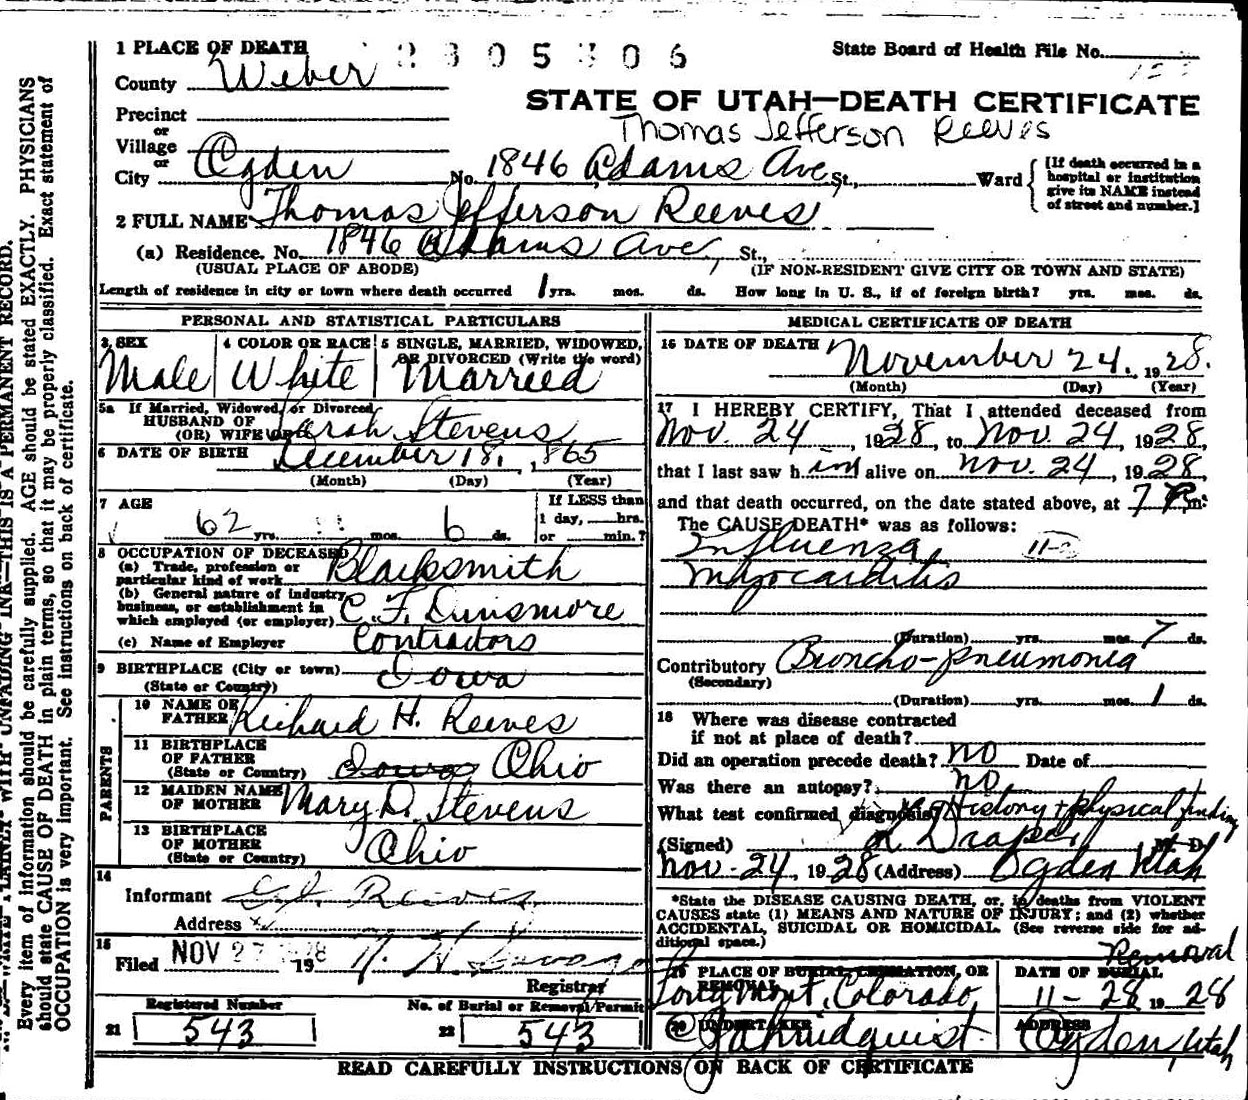 1 PLACE OF DEATH 2305306 State Board of Health File No.
County Weber
STATE OF UTAH—DEATH CERTIFICATE
Precinct
Thomas Jefferson Reeves
or
Village
or
City Ogden No. 1846 Adams Ave St., Ward
[If death occurred in a hospital or institution give its NAME instead of street and number.]
2 FULL NAME Thomas Jefferson Reeves
(a) Residence. No. 1846 Adams Ave, St.,
(USUAL PLACE OF ABODE) (IF NON-RESIDENT GIVE CITY OR TOWN AND STATE)
Length of residence in city or town where death occurred 1 yrs. mos. ds. How long in U. S., if of foreign birth? yrs. mos. ds.
PERSONAL AND STATISTICAL PARTICULARS
3 SEX Male
4 COLOR OR RACE White
5 SINGLE, MARRIED, WIDOWED, OR DIVORCED (Write the word) Married
5a If Married, Widowed, or Divorced
HUSBAND OF
(OR) WIFE OF Sarah Stevens
6 DATE OF BIRTH December 18, 1865
(Month) (Day) (Year)
7 AGE 62 yrs. 11 mos. 6 ds.
If LESS than
1 day, hrs.
or min.?
8 OCCUPATION OF DECEASED
(a) Trade, profession or
particular kind of work Blacksmith
(b) General nature of industry,
business, or establishment in
which employed (or employer) C. F. Dinsmore
(c) Name of Employer Contractors
9 BIRTHPLACE (City or town)
(State or Country) Iowa
PARENTS
10 NAME OF
FATHER Richard H. Reeves
11 BIRTHPLACE
OF FATHER
(State or Country) Iowa Ohio
12 MAIDEN NAME
OF MOTHER Mary D. Stevens
13 BIRTHPLACE
OF MOTHER
(State or Country) Ohio
14
Informant Reeves
Address
15
Filed NOV 27 1928 19
Registrar
Registered Number
21 543
No. of Burial or Removal Permit
22 543
MEDICAL CERTIFICATE OF DEATH
16 DATE OF DEATH November 24, 1928.
(Month) (Day) (Year)
17 I HEREBY CERTIFY, That I attended deceased from
Nov. 24, 1928, to Nov. 24, 1928,
that I last saw him alive on Nov. 24, 1928,
and that death occurred, on the date stated above, at 7 P m.
The CAUSE DEATH* was as follows:
Influenza,
Myocarditis
(Duration) yrs. mos. 7 ds.
Contributory Broncho-pneumonia
(Secondary)
(Duration) yrs. mos. 1 ds.
18 Where was disease contracted
if not at place of death?
Did an operation precede death? no Date of
Was there an autopsy? no
What test confirmed diagnosis? History + physical finding
(Signed) Draper M. D.
Nov-24, 1928 (Address) Ogden Utah
*State the DISEASE CAUSING DEATH, or, in deaths from VIOLENT
CAUSES state (1) MEANS AND NATURE OF INJURY; and (2) whether
ACCIDENTAL, SUICIDAL OR HOMICIDAL. (See reverse side for additional space.)
19 PLACE OF BURIAL, CREMATION, OR REMOVAL
Longmont, Colorado,
Removal
DATE OF BURIAL
11-28 1928
20 UNDERTAKER
Lindquist
ADDRESS
Ogden, Utah
READ CAREFULLY INSTRUCTIONS ON BACK OF CERTIFICATE
Every item of information should be carefully supplied. AGE should be stated EXACTLY. PHYSICIANS
should state CAUSE OF DEATH in plain terms, so that it may be properly classified. Exact statement of
OCCUPATION is very important. See instructions on back of certificate.